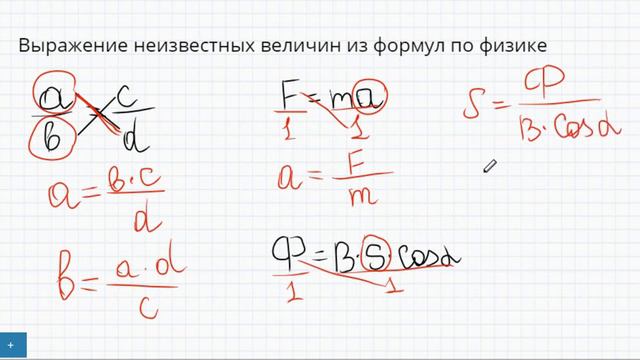 Выражение неизвестных величин из формул по физике
a/в = c/d
a = в·c/d
в = a·d/c
F/1 = ma/1
a = F/m
Ф/1 = B·S·cosα/1
S = Ф/B·cosα
+